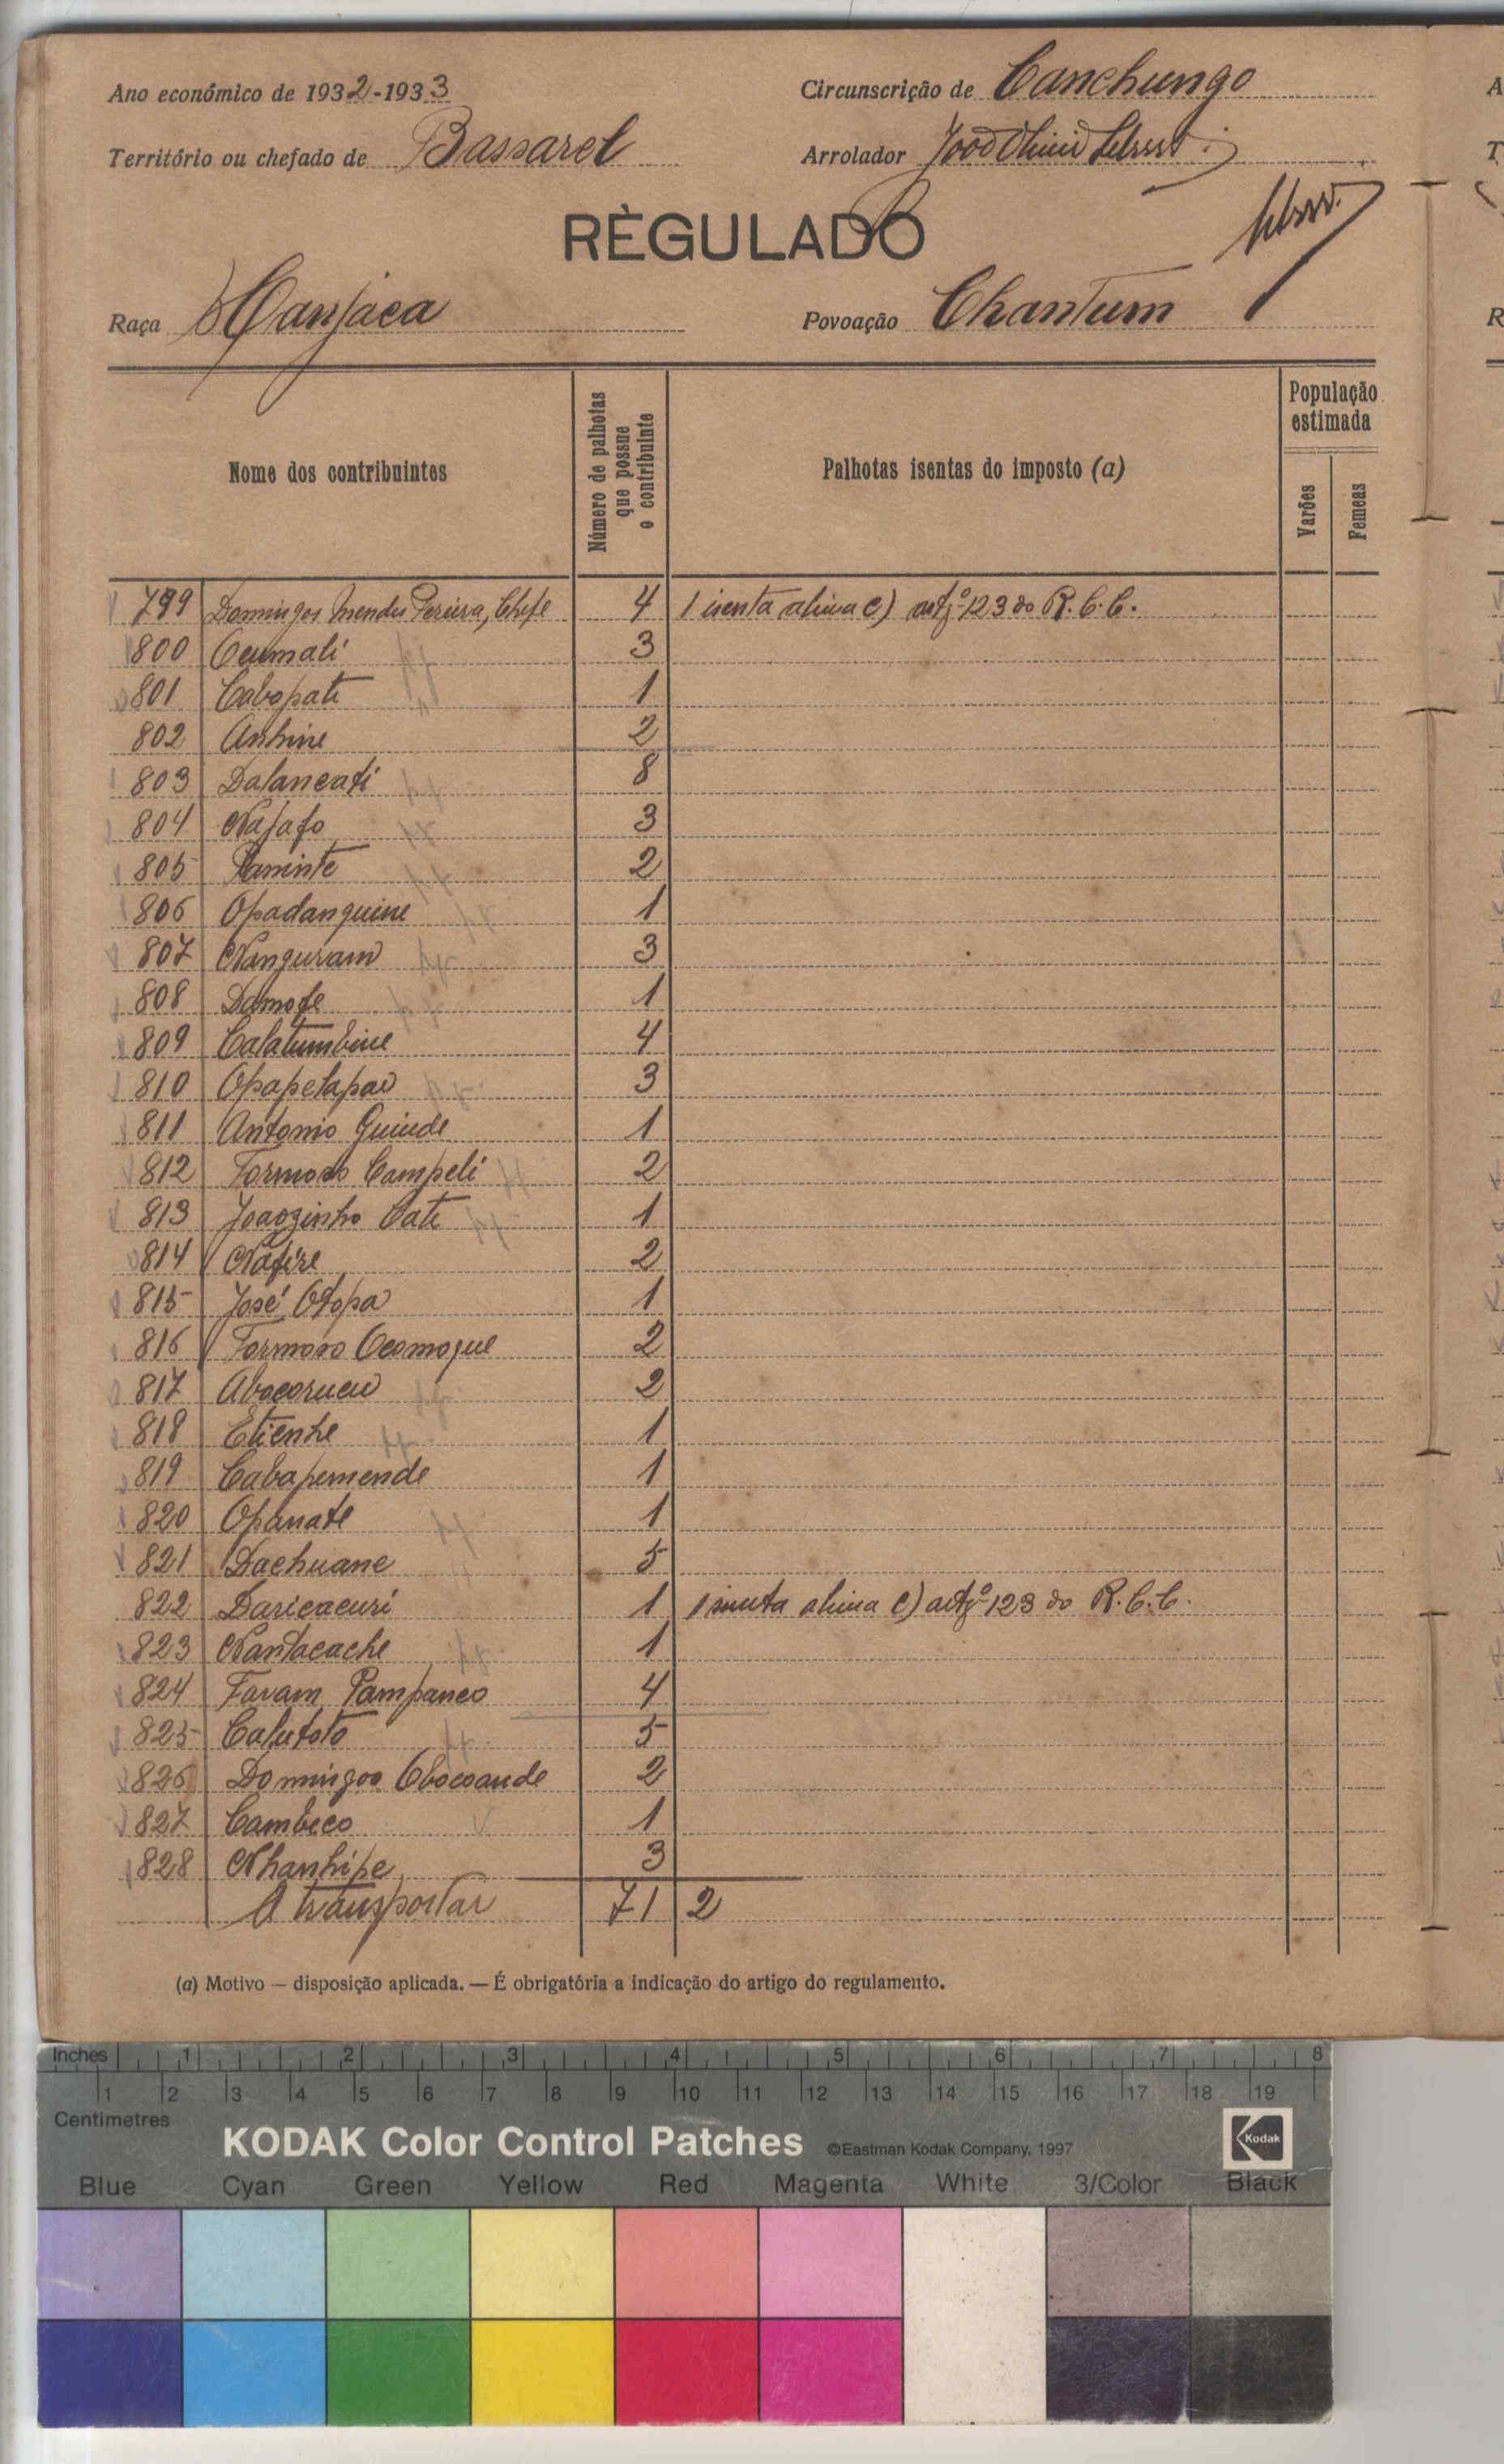 Ano económico de 1932-1933
Circunscrição de Canchungo
Território ou chefado de Bassarel
Arrolador João
RÈGULADO
Raça Manjaca
Povoação Chantum
Nome dos contribuintes
Número de palhotas que possue o contribuinte
Palhotas isentas do imposto (a)
População estimada
Varões
Femeas
799 Domingos Mendes Pereira, Chefe 4 1 isenta alinea c) artgº 123 do R.C.C.
800 Ocumali 3
801 Cabopate 1
802 Anhine 2
803 Dalancati 8
804 Najafo 3
805 Naminte 2
806 Opadanguine 1
807 Nanguram 3
808 Damofe 1
809 Calatumbine 4
810 Opapelapao 3
811 Antonio Guinde 1
812 Formoso Campeli 2
813 Joaozinho Cate 1
814 Nafire 2
815 José Otopa 1
816 Formoso Ocomoque 2
817 Abocorucu 2
818 Etienhe 1
819 Cabapemende 1
820 Opanate 1
821 Dachuane 5
822 Daricacuri 1 1 isenta alinea c) artgº 123 do R.C.C.
823 Nantacache 1
824 Favam Pampanco 4
825 Calutoto 5
826 Domingos Obocoande 2
827 Cambeco 1
828 Nhanhipe 3
A transportar 71 2
(a) Motivo — disposição aplicada. — É obrigatória a indicação do artigo do regulamento.
Inches 1 2 3 4 5 6 7 8
1 2 3 4 5 6 7 8 9 10 11 12 13 14 15 16 17 18 19
Centimetres
KODAK Color Control Patches ©Eastman Kodak Company, 1997 Kodak
Blue Cyan Green Yellow Red Magenta White 3/Color Black